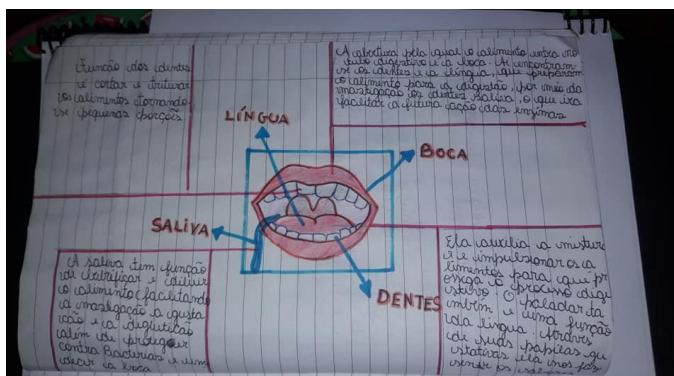 Função dos dentes
é cortar e triturar
os alimentos tornando
se pequenas porções
A abertura pela qual o alimento entra no
tubo digestivo é a boca. Aí encontram
se os dentes e a língua, que preparam
o alimento para a digestão, por meio da
mastigação os dentes saliva, o que irá
facilitar a futura ação das enzimas
LÍNGUA
BOCA
SALIVA
DENTES
A saliva tem função
de lubrificar e diluir
o alimento (facilitando
a mastigação a gusta
ção e a deglutição
além de proteger
contra bactérias e um
decir a boca
Ela auxilia a mistura
e impulsionar os a
limentos para que pr
ossiga o processo dige
stivo. O paladar ta
mbém é uma função
da língua. Através
de suas papilas gu
stativas ela nos faz
sentir os